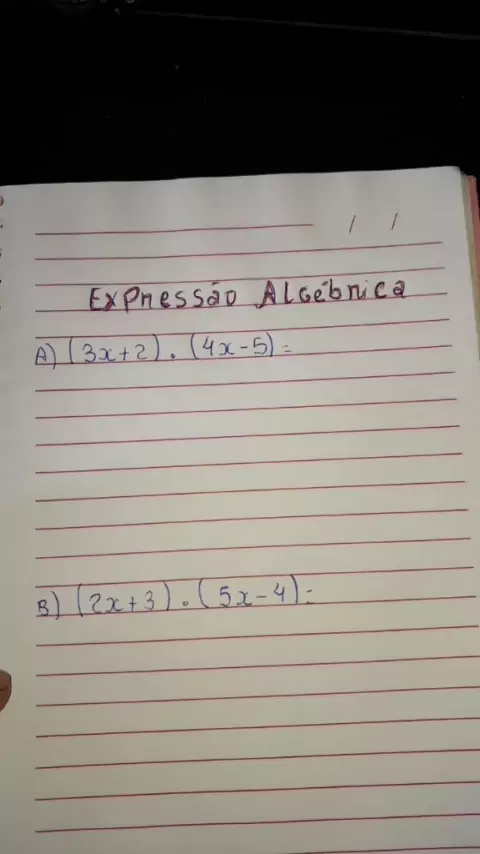 / /
Expressão Algébrica
A) (3x+2) . (4x-5) =
B) (2x+3) . (5x-4) =